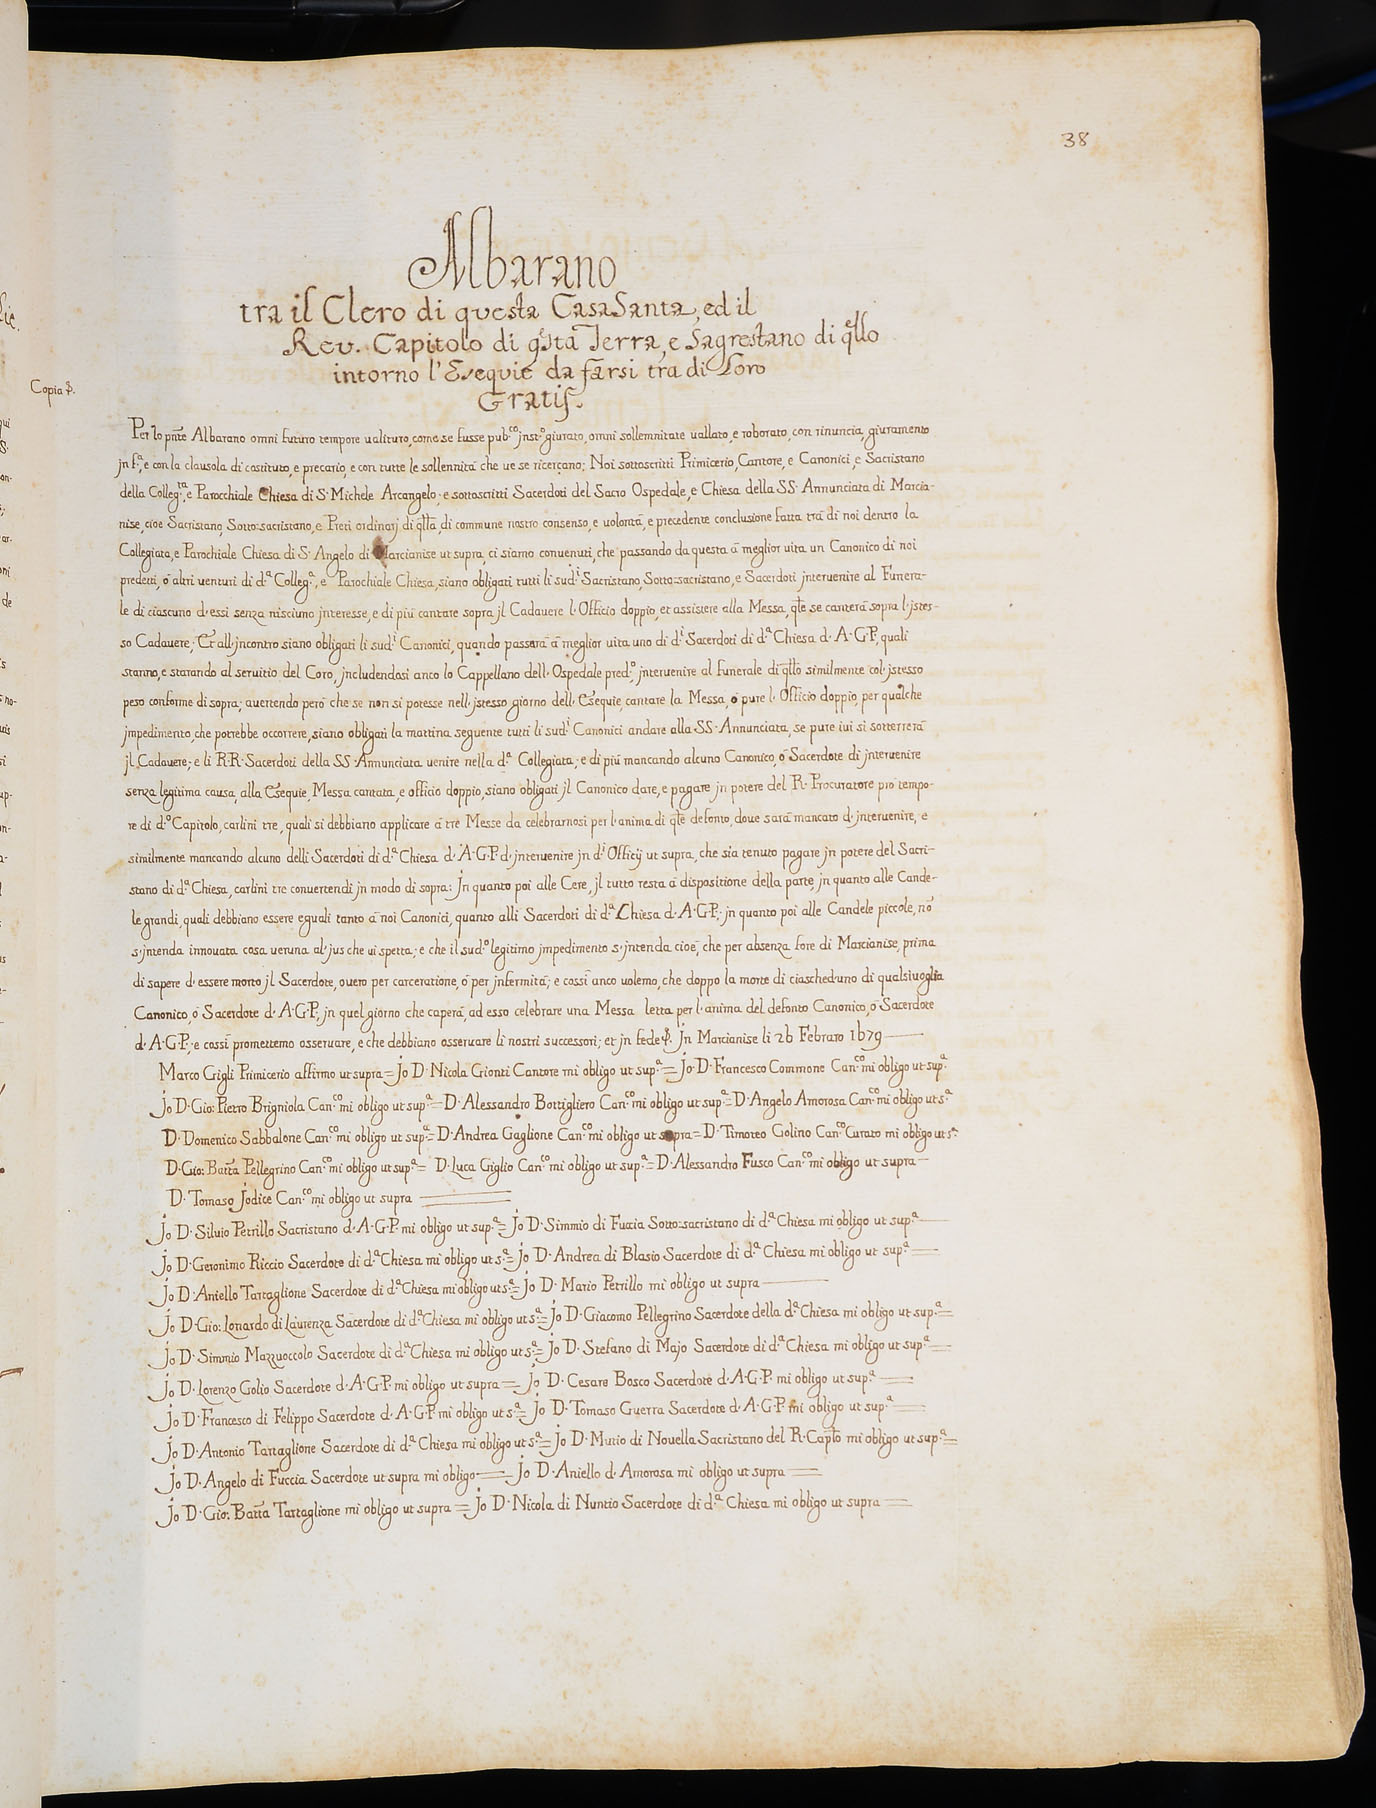 38
Albarano
tra il Clero di questa Casa Santa, ed il
Rev. Capitolo di q.sta Terra, e Sagrestano di q.llo
intorno l'Esequie da farsi tra di Loro
Gratis.
Copia
Per lo pnte Albarano omni futuro tempore ualituro, come se fusse pub.co jnst.o giurato, omni sollemnitate uallato, e roborato, con rinuncia, giuramento
jn f.a, e con la clausola di costituto, e precario, e con tutte le sollennità che ue se ricercano; Noi sottoscritti Primicerio, Cantore, e Canonici, e Sacristano
della Colleg.ta, e Parocchiale Chiesa di S. Michele Arcangelo, e sottoscritti Sacerdoti del Sacro Ospedale, e Chiesa della SS. Annunciata di Marcia-
nise, cioè Sacristano, Sotto-sacristano, e Preti ordinarj di qlla, di commune nostro consenso, e uolontà, e precedente conclusione fatta trà di noi dentro la
Collegiata, e Parochiale Chiesa di S. Angelo di Marcianise ut supra, ci siamo conuenuti, che passando da questa à meglior uita un Canonico di noi
predetti, ò altri uenturi di d.a Colleg.a, e Parochiale Chiesa, siano obligati tutti li sud.i Sacristano, Sotto-sacristano, e Sacerdoti jnteruenire al Funera-
le di ciascuno d'essi senza nisciuno jnteresse, e di più cantare sopra jl Cadauere l'Officio doppio, et assistere alla Messa, qle se canterà sopra l'jstes-
so Cadauere; Et all'jncontro siano obligati li sud.i Canonici, quando passerà à meglior uita uno di d.i Sacerdoti di d.a Chiesa d'A.G.P., quali
stanno, e starando al seruitio del Coro, jncludendosi anco lo Cappellano dell'Ospedale pred.o, jnteruenire al funerale di qllo similmente col'jstesso
peso conforme di sopra; auertendo però che se non si potesse nell'jstesso giorno dell'Esequie, cantare la Messa, ò pure l'Officio doppio, per qualche
jmpedimento, che potrebbe occorrere, siano obligati la mattina seguente tutti li sud.i Canonici andare alla SS. Annunciata, se pure iui si sotterrerà
jl Cadauere; e li R.R. Sacerdoti della SS. Annunciata uenire nella d.a Collegiata; e di più mancando alcuno Canonico, ò Sacerdote di jnteruenire
senza legitima causa, alla Esequie, Messa cantata, e officio doppio, siano obligati jl Canonico dare, e pagare jn potere del R. Procuratore pro tempo-
re di d.o Capitolo, carlini tre, quali si debbiano applicare à tre Messe da celebrarnosi per l'anima di qle defonto, doue sarà mancato d'jnteruenire, e
similmente mancando alcuno delli Sacerdoti di d.a Chiesa d'A.G.P. d'jnteruenire jn d.i Officij ut supra, che sia tenuto pagare jn potere del Sacri-
stano di d.a Chiesa, carlini tre conuertendi jn modo di sopra: Jn quanto poi alle Cere, jl tutto resta à dispositione della parte, jn quanto alle Cande-
le grandi, quali debbiano essere eguali tanto à noi Canonici, quanto alli Sacerdoti di d.a Chiesa d'A.G.P.; jn quanto poi alle Candele piccole, nò
s'jntenda innouata cosa ueruna al'jus che ui spetta; e che il sud.o legitimo jmpedimento s'jntenda cioè, che per absenza fore di Marcianise, prima
di sapere d'essere morto jl Sacerdote, ouero per carceratione, ò per jnfermità; e cossì anco uolemo, che doppo la morte di ciascheduno di qualsiuoglia
Canonico, ò Sacerdote d'A.G.P., jn quel giorno che caperà, ad esso celebrare una Messa letta per l'anima del defonto Canonico, ò Sacerdote
d'A.G.P.; e cossì promettemo osseruare, e che debbiano osseruare li nostri successori; et jn fede. Jn Marcianise li 26 Febraro 1679
Marco Gigli Primicerio affirmo ut supra = Jo D. Nicola Gionti Cantore mi obligo ut sup.a = Jo D. Francesco Commone Can.co mi obligo ut sup.a
Jo D. Gio: Pietro Brigniola Can.co mi obligo ut sup.a = D. Alessandro Bottigliero Can.co mi obligo ut sup.a = D. Angelo Amorosa Can.co mi obligo ut s.a
D. Domenico Sabbalone Can.co mi obligo ut sup.a = D. Andrea Gaglione Can.co mi obligo ut supra = D. Timoteo Golino Can.co Curato mi obligo ut s.a
D. Gio: Batta Pellegrino Can.co mi obligo ut sup.a = D. Luca Giglio Can.co mi obligo ut sup.a = D. Alessandro Fusco Can.co mi obligo ut supra
D. Tomaso Jodice Can.co mi obligo ut supra
Jo D. Siluio Petrillo Sacristano d'A.G.P. mi obligo ut sup.a = Jo D. Simmio di Fuccia Sotto-sacristano di d.a Chiesa mi obligo ut sup.a
Jo D. Geronimo Riccio Sacerdote di d.a Chiesa mi obligo ut s.a = Jo D. Andrea di Blasio Sacerdote di d.a Chiesa mi obligo ut sup.a
Jo D. Aniello Tartaglione Sacerdote di d.a Chiesa mi obligo ut s.a = Jo D. Mario Petrillo mi obligo ut supra
Jo D. Gio: Lonardo di Laurenza Sacerdote di d.a Chiesa mi obligo ut s.a = Jo D. Giacomo Pellegrino Sacerdote della d.a Chiesa mi obligo ut sup.a
Jo D. Simmio Mazzuoccolo Sacerdote di d.a Chiesa mi obligo ut s.a = Jo D. Stefano di Majo Sacerdote di d.a Chiesa mi obligo ut sup.a
Jo D. Lorenzo Golio Sacerdote d'A.G.P. mi obligo ut supra = Jo D. Cesare Bosco Sacerdote d'A.G.P. mi obligo ut sup.a
Jo D. Francesco di Felippo Sacerdote d'A.G.P. mi obligo ut s.a = Jo D. Tomaso Guerra Sacerdote d'A.G.P. mi obligo ut sup.a
Jo D. Antonio Tartaglione Sacerdote di d.a Chiesa mi obligo ut s.a = Jo D. Mutio di Nouella Sacristano del R. Capto mi obligo ut sup.a
Jo D. Angelo di Fuccia Sacerdote ut supra mi obligo = Jo D. Aniello d'Amorosa mi obligo ut supra
Jo D. Gio: Batta Tartaglione mi obligo ut supra = Jo D. Nicola di Nuntio Sacerdote di d.a Chiesa mi obligo ut supra